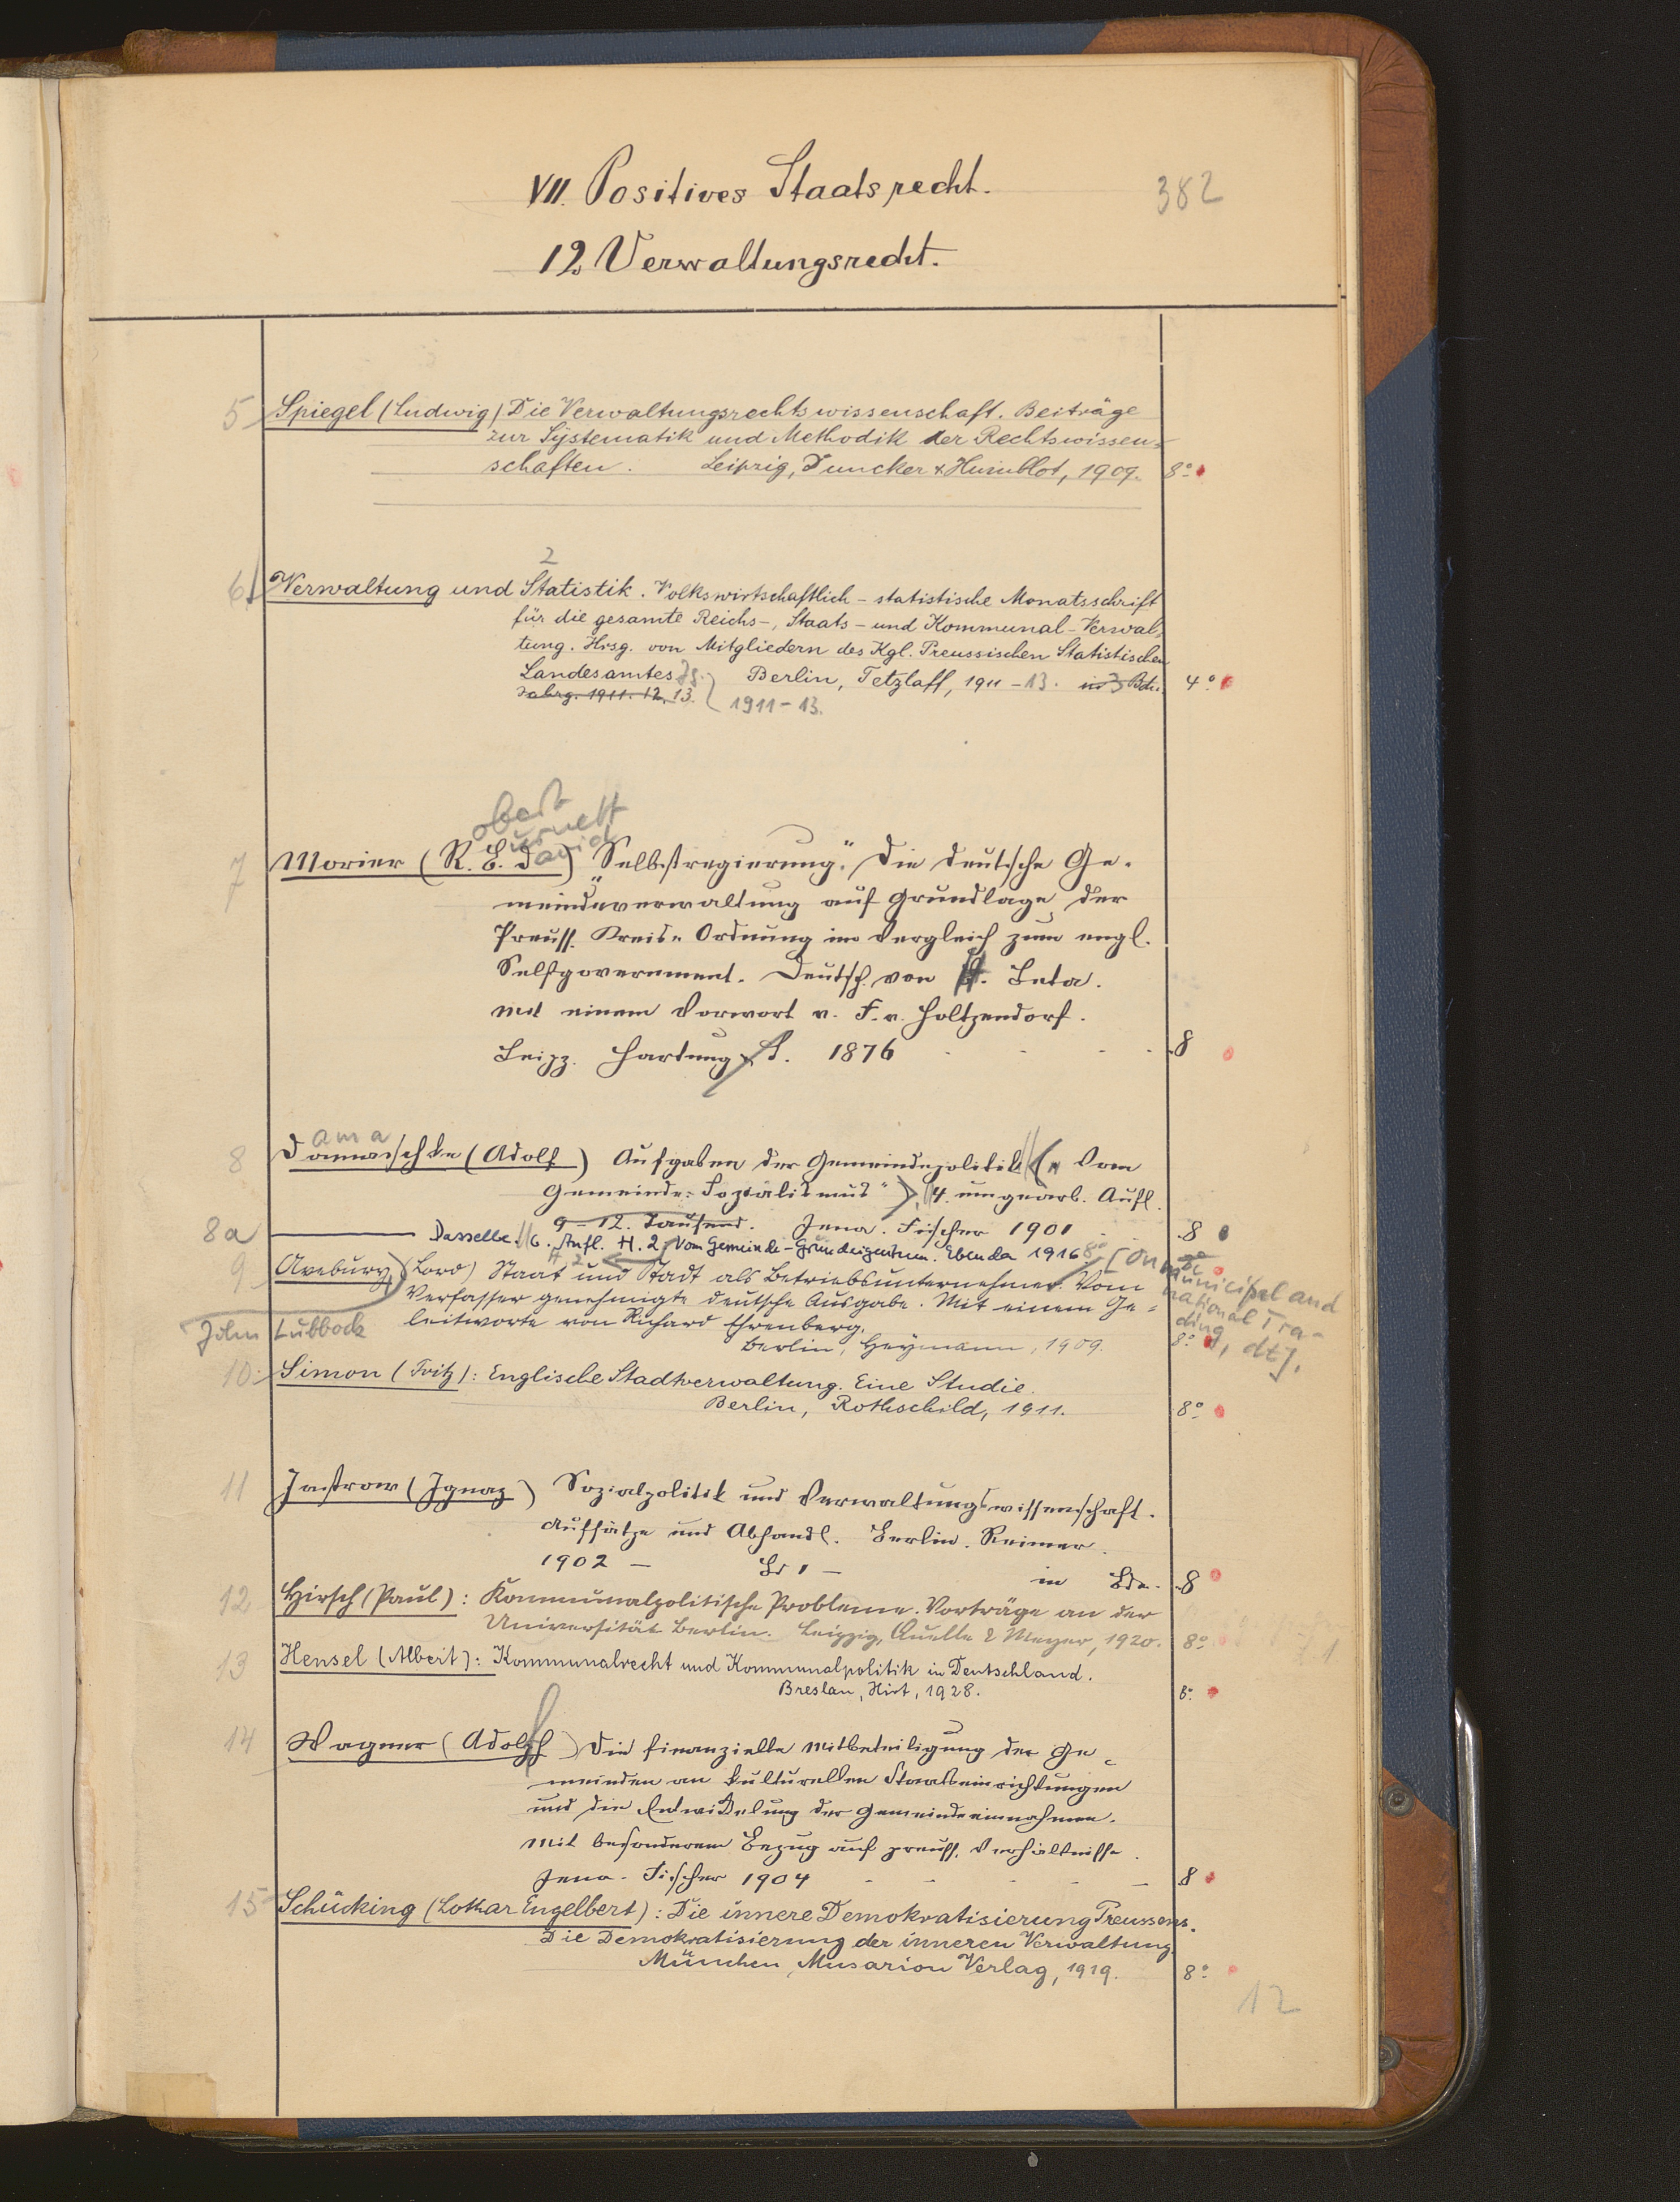 VII. Positives Staatsrecht.
382
12. Verwaltungsrecht.
5 Spiegel (Ludwig) Die Verwaltungsrechtswissenschaft. Beiträge
zur Systematik und Methodik der Rechtswissen-
schaften. Leipzig, Duncker & Humblot, 1909. 8°
2
6 Verwaltung und Statistik. Volkswirtschaftlich-statistische Monatsschrift
für die gesamte Reichs-, Staats- und Kommunal-Verwal-
tung. Hrsg. von Mitgliedern des Kgl. Preussischen Statistischen
Landesamtes Jg. Berlin, Tetzlaff, 1911-13. in 3 Bdn. 4°
Jahrg. 1911. 12. 13. 1911-13.
obert
urnett
7 Morier (R. B. David) "Selbstregierung". Die deutsche Ge-
meindeverwaltung auf Grundlage der
Preuss. Kreis-Ordnung im Vergleich zum engl.
Selfgovernment. Deutsch von Beta.
mit einem Vorwort v. F. v. Holtzendorf.
Leipz. Hartung 1876 8
ama
8 Damaschke (Adolf) Aufgaben der Gemeindepolitik ("Vom
Gemeinde-Sozialismus"). 4. umgearb. Aufl.
9-12. Tausend. Jena. Fischer 1901 8
8a Dasselbe. 6. Aufl. H. 2. Vom Gemeinde-Grundeigentum. Ebenda 1916 8°
9 Avebury, (Lord) Staat und Stadt als Betriebsunternehmer. Vom [On municipal and
Verfasser genehmigte deutsche Ausgabe. Mit einem Ge- national Tra-
John Lubbock leitworte von Richard Ehrenberg. ding, dt].
Berlin, Heymann, 1909. 8°
10 Simon (Fritz): Englische Stadtverwaltung. Eine Studie.
Berlin, Rothschild, 1911. 8°
11 Jastrow (Ignaz) Sozialpolitik und Verwaltungswissenschaft.
Aufsätze und Abhandl. Berlin. Reimer.
1902 – Bd 1 – in Bdn. 8
12 Hirsch (Paul): Kommunalpolitische Probleme. Vorträge an der
Universität Berlin. Leipzig, Quelle & Meyer, 1920. 8°
13 Hensel (Albert): Kommunalrecht und Kommunalpolitik in Deutschland.
Breslau, Hirt, 1928. 8°
14 Wagner (Adolph) Die finanzielle Mitbeteiligung der Ge-
meinden an kulturellen Staatseinrichtungen
und die Entwickelung der Gemeindeeinnahmen.
Mit besonderem Bezug auf preuss. Verhältnisse.
Jena. Fischer 1904 8
15 Schücking (Lothar Engelbert): Die innere Demokratisierung Preussens.
Die Demokratisierung der inneren Verwaltung.
München, Musarion Verlag, 1919. 8°
12